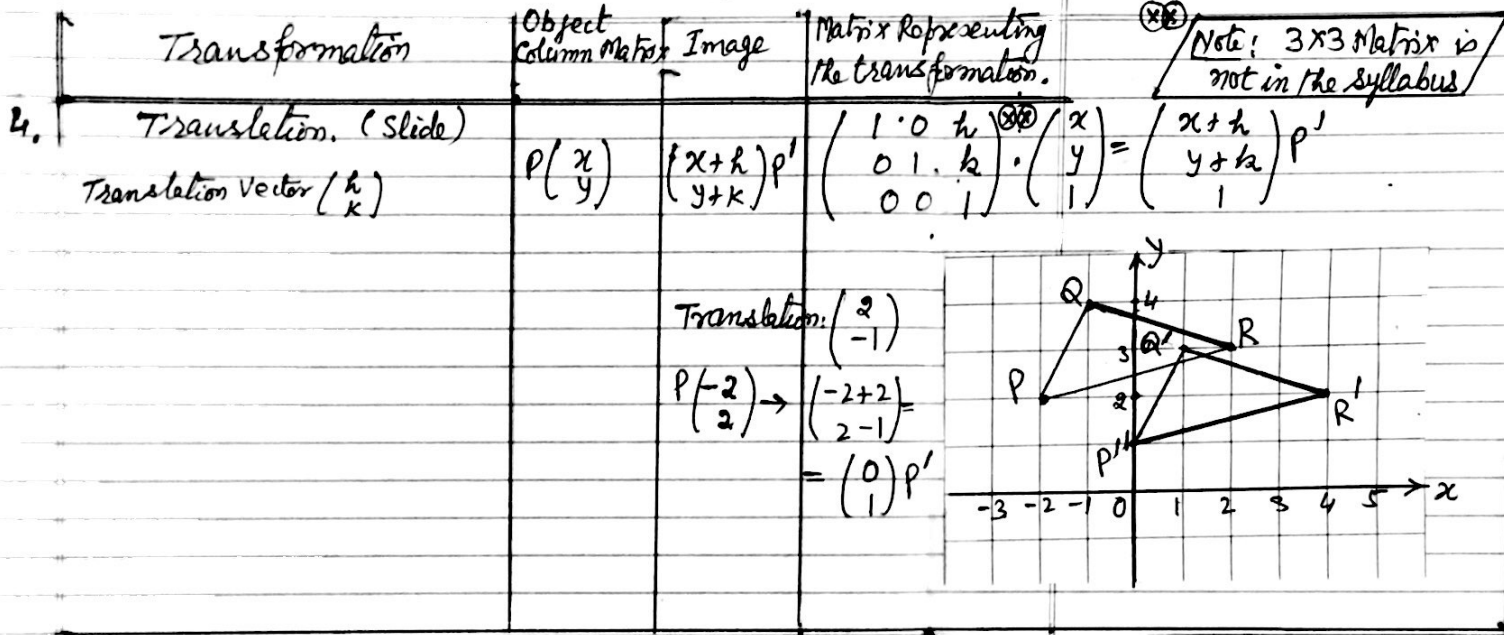 Transformation
Object
Column Matrix
Image
Matrix Representing
the transformation.
** Note: 3×3 Matrix is
not in the syllabus
4.
Translation. (Slide)
Translation Vector (h
k)
P(x
y)
(x+h
y+k) P'
(1 0 h
0 1 k
0 0 1) ** · (x
y
1) = (x+h
y+k
1) P'
Translation: (2
-1)
P(-2
2) → (-2+2
2-1) =
= (0
1) P'
y
Q 4
3 Q' R
P 2 R'
P' 1
-3 -2 -1 0 1 2 3 4 5 x